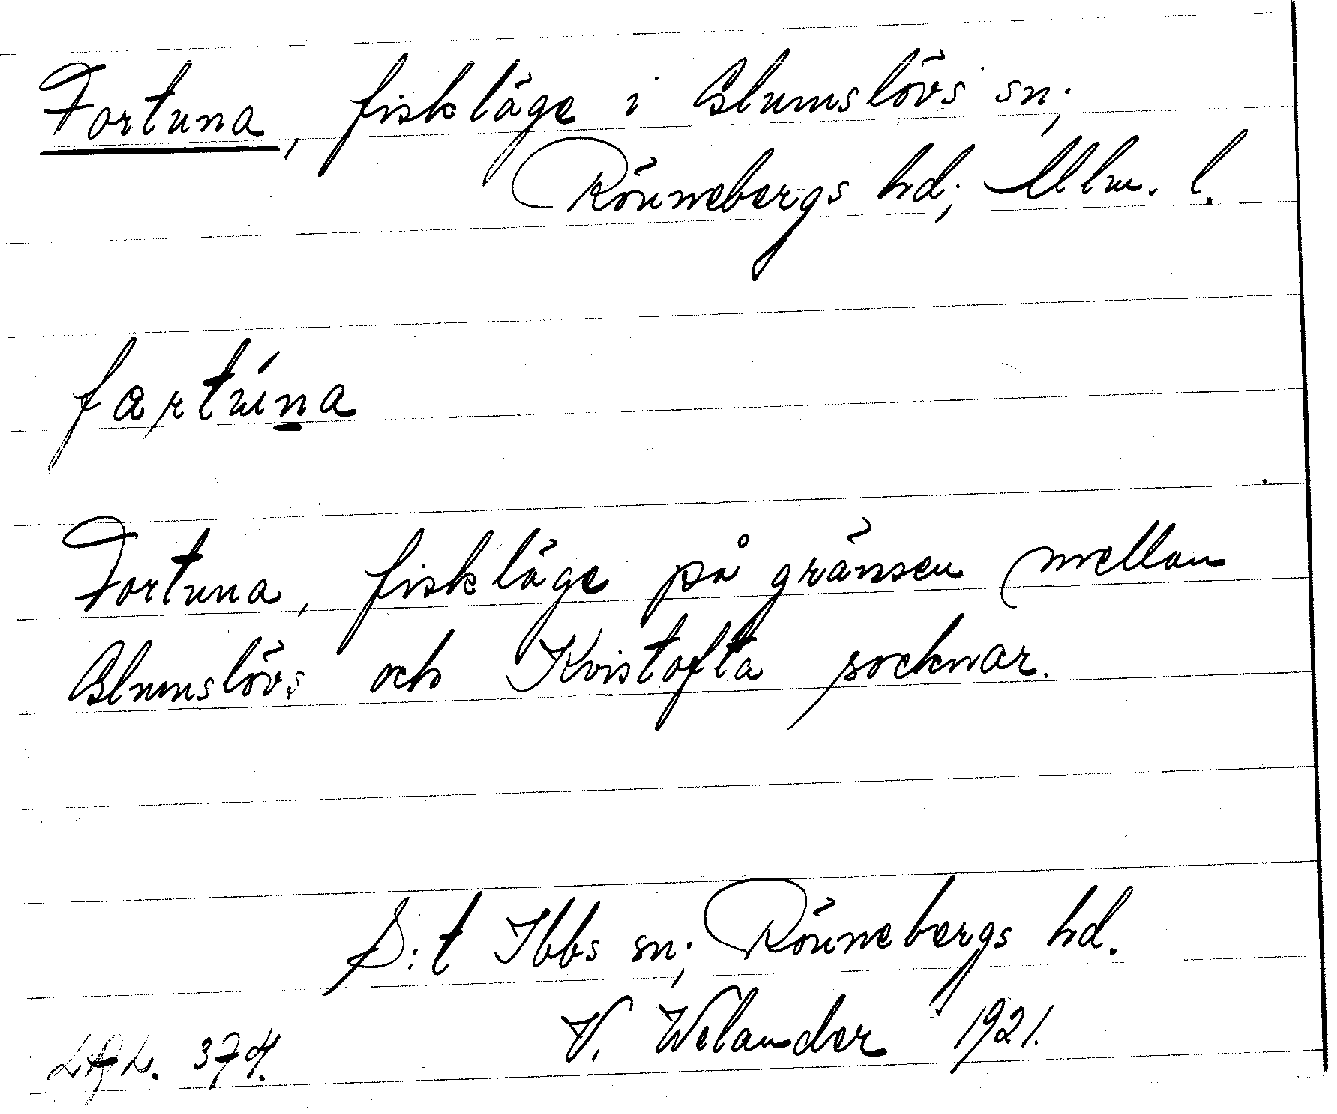 Fortuna, fiskläge i Glumslövs sn;
Rönnebergs hd; Mlm. l.
fartúna
Fortuna, fiskläge på gränsen mellan
Glumslövs och Kvistofta socknar.
S:t Ibbs sn; Rönnebergs hd.
V. Welander 1921.
374.